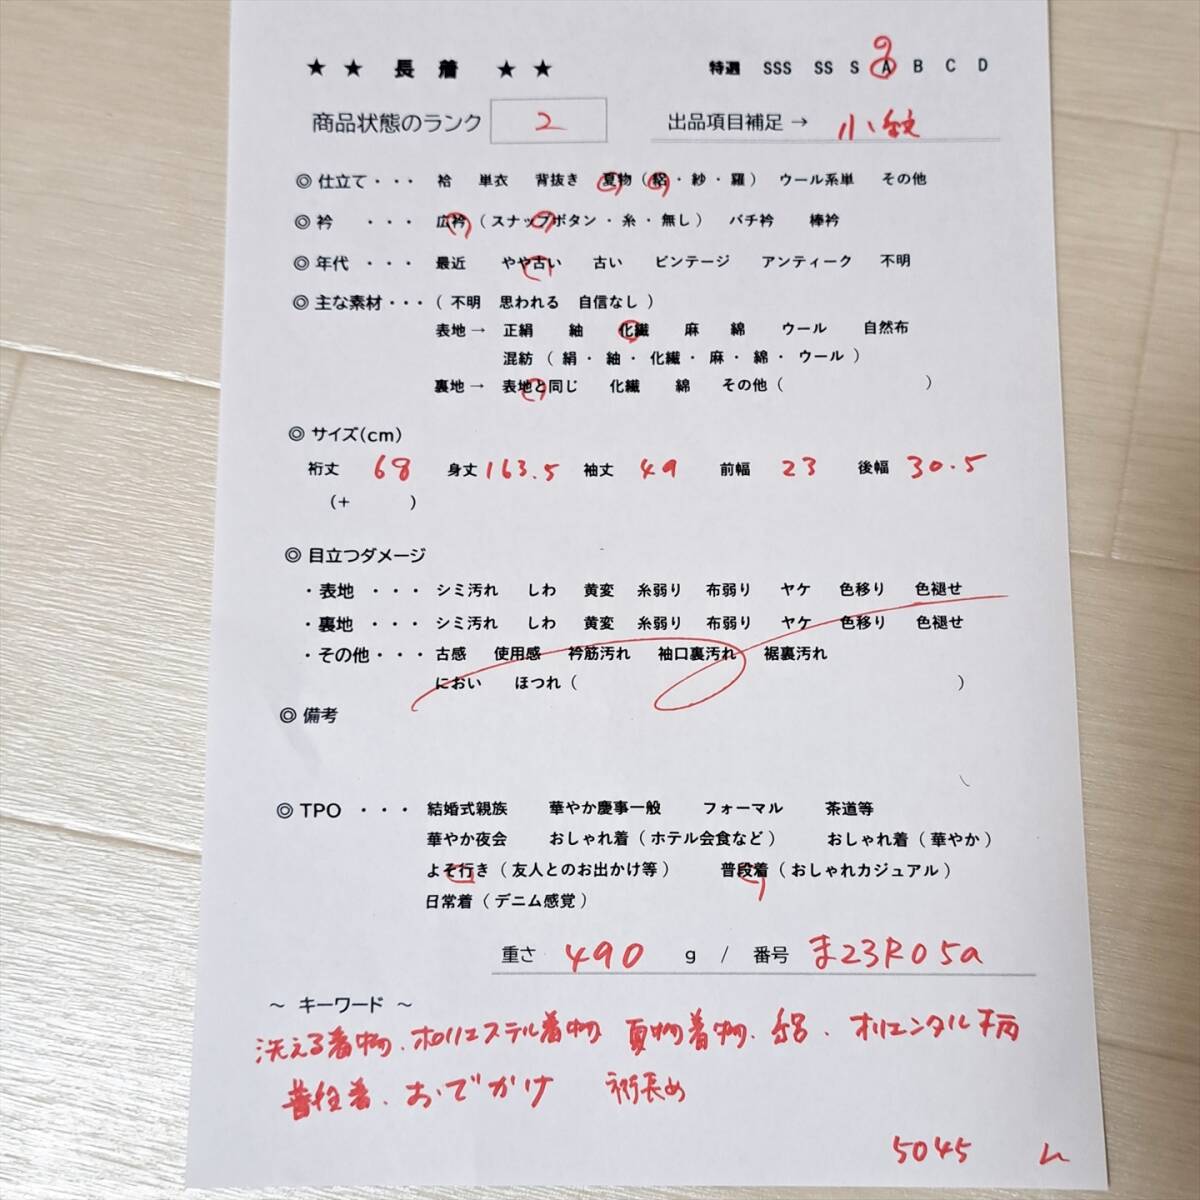 ★ ★ 長 着 ★ ★ 特選 SSS SS S A B C D
商品状態のランク 2 出品項目補足 → 小紋
◎ 仕立て・・・ 袷 単衣 背抜き 夏物（絽・紗・羅） ウール系単 その他
◎ 衿 ・・・ 広衿（スナップボタン・糸・無し） バチ衿 棒衿
◎ 年代 ・・・ 最近 やや古い 古い ビンテージ アンティーク 不明
◎ 主な素材・・・（ 不明 思われる 自信なし ）
表地→ 正絹 紬 化繊 麻 綿 ウール 自然布
混紡（ 絹・ 紬・ 化繊・ 麻・ 綿・ ウール ）
裏地→ 表地と同じ 化繊 綿 その他（ ）
◎ サイズ(cm)
裄丈 68 身丈 163.5 袖丈 49 前幅 23 後幅 30.5
（+ ）
◎ 目立つダメージ
・表地 ・・・ シミ汚れ しわ 黄変 糸弱り 布弱り ヤケ 色移り 色褪せ
・裏地 ・・・ シミ汚れ しわ 黄変 糸弱り 布弱り ヤケ 色移り 色褪せ
・その他・・・ 古感 使用感 衿筋汚れ 袖口裏汚れ 裾裏汚れ
におい ほつれ（ ）
◎ 備考
◎ TPO ・・・ 結婚式親族 華やか慶事一般 フォーマル 茶道等
華やか夜会 おしゃれ着（ホテル会食など） おしゃれ着（華やか）
よそ行き（友人とのお出かけ等） 普段着（おしゃれカジュアル）
日常着（デニム感覚）
重さ 490 g / 番号 ま23R05a
～ キーワード ～
洗える着物、ポリエステル着物 夏物着物、絽、オリエンタル柄
普段着、おでかけ 裄長め
5045 ム